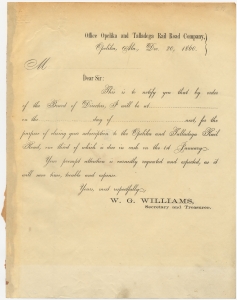 Office Opelika and Talladega Rail Road Company,
Opelika, Ala., Dec. 20, 1860.
M
Dear Sir:
This is to notify you that by order
of the Board of Directors, I will be at
on the day of next, for the
purpose of closing your subscription to the Opelika and Talladega Rail
Road, one third of which is due in cash on the 1st January.
Your prompt attention is earnestly requested and expected, as it
will save time, trouble and expense.
Yours, most respectfully,
W. G. WILLIAMS,
Secretary and Treasurer.